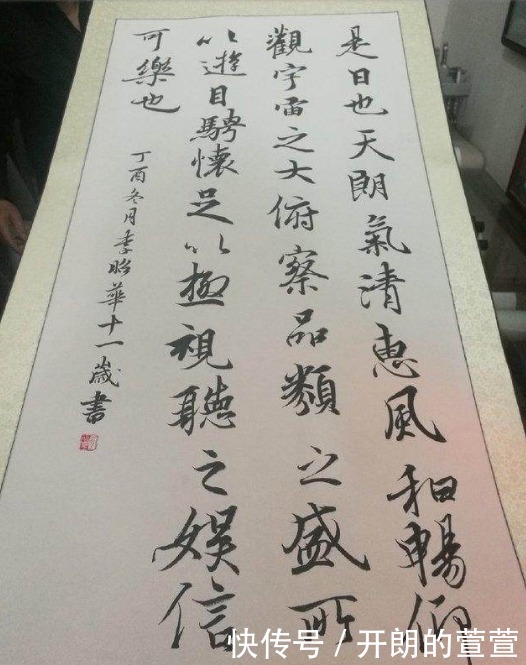 是日也天朗氣清惠風和暢仰
觀宇宙之大俯察品類之盛所
以遊目騁懷足以極視聽之娛信
可樂也
丁酉冬月李昭華十一歲書
快传号 / 开朗的萱萱